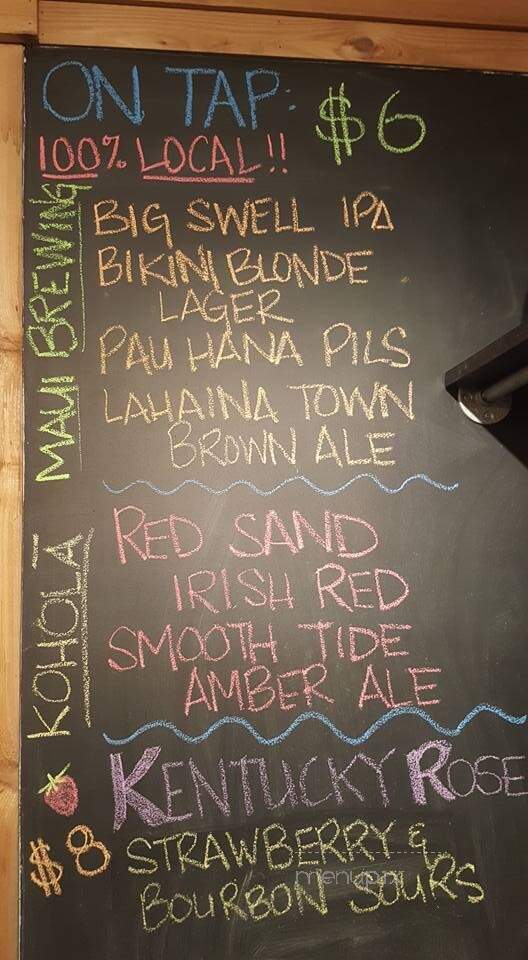 ON TAP: $6
100% LOCAL!!
MAUI BREWING
BIG SWELL IPA
BIKINI BLONDE
LAGER
PAU HANA PILS
LAHAINA TOWN
BROWN ALE
KOHOLĀ
RED SAND
IRISH RED
SMOOTH TIDE
AMBER ALE
KENTUCKY ROSE
$8 STRAWBERRY &
BOURBON SOURS